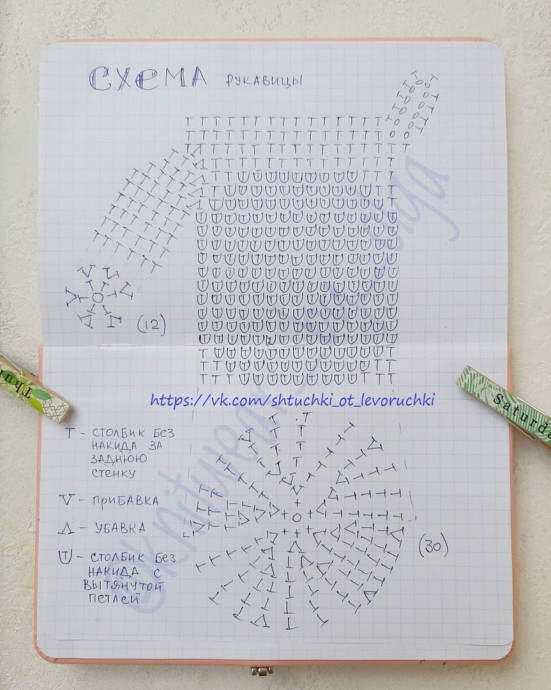 СХЕМА РУКАВИЦЫ
(12)
https://vk.com/shtuchki_ot_levoruchki
Т - СТОЛБИК БЕЗ
НАКИДА ЗА
ЗАДНЮЮ
СТЕНКУ
V - ПРИБАВКА
Λ - УБАВКА
(30)
U - СТОЛБИК БЕЗ
НАКИДА С
ВЫТЯНУТОЙ
ПЕТЛЕЙ
Saturda